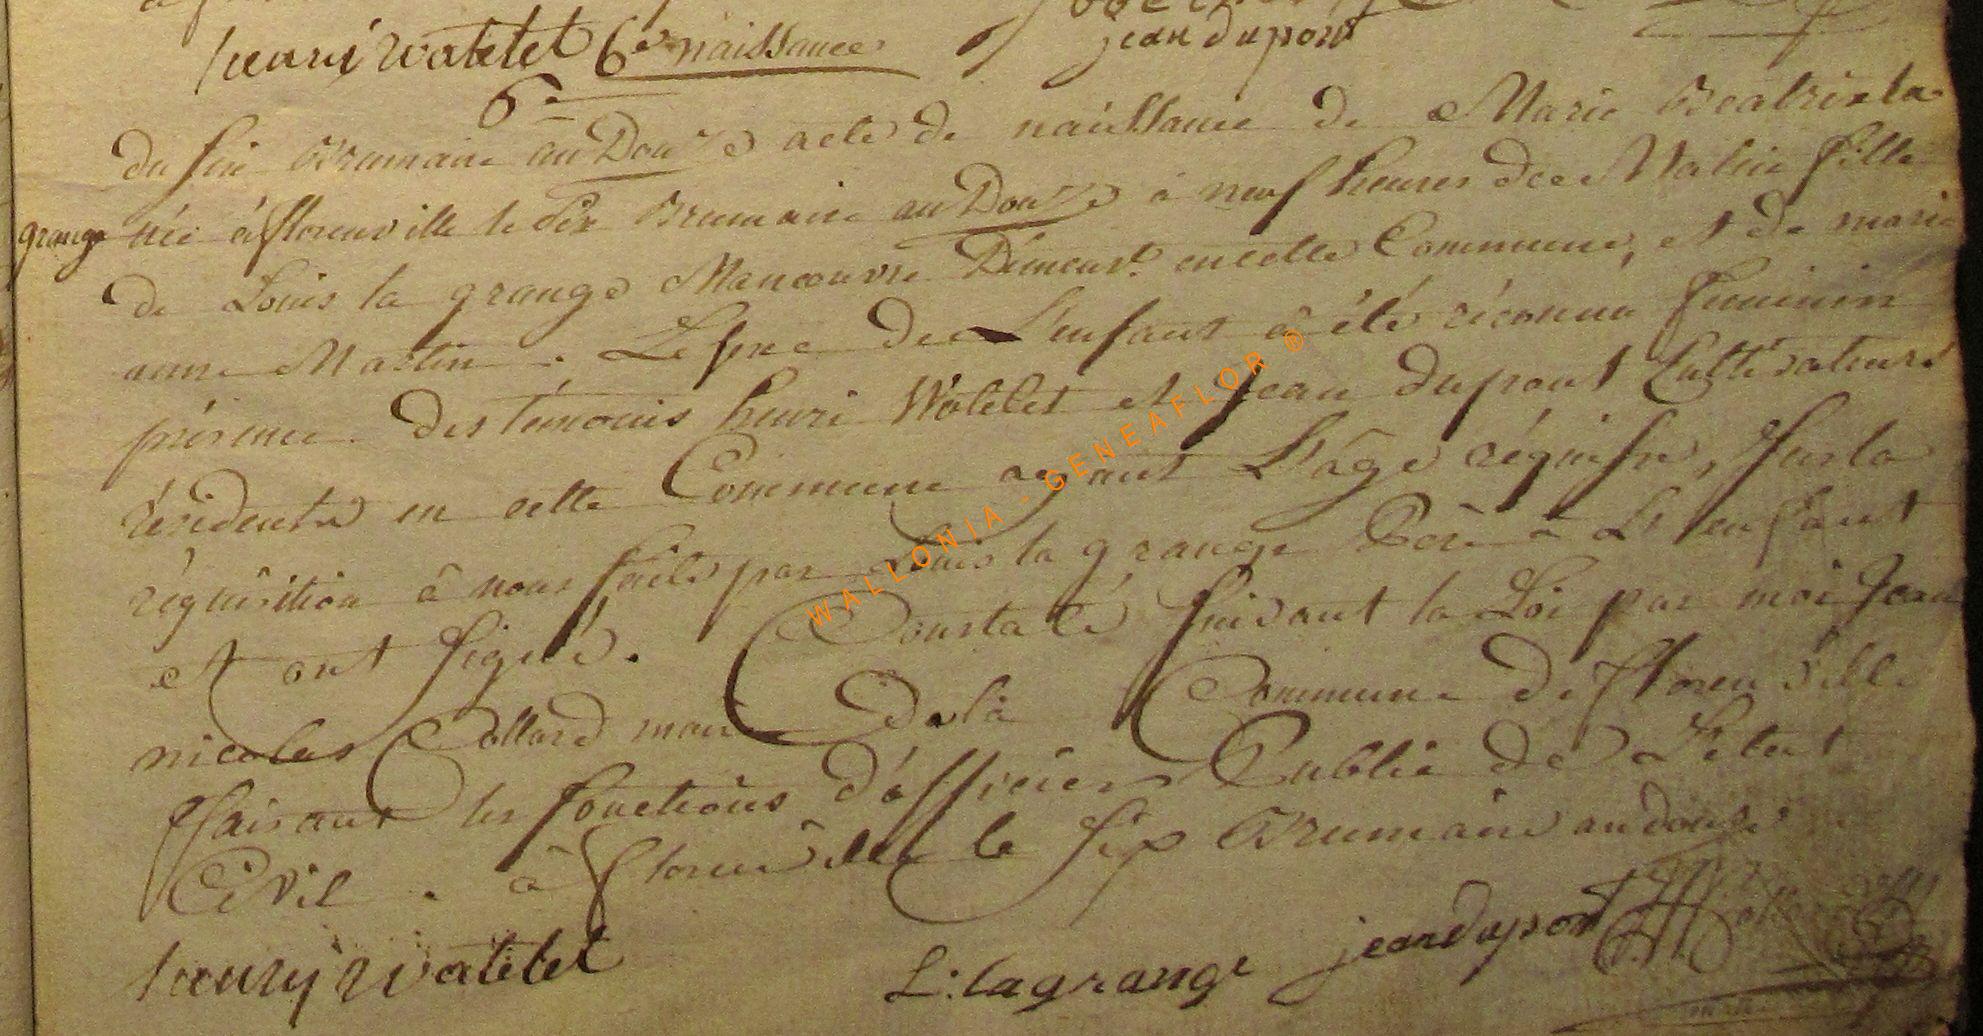 henri watelet 6e naissance jean dupont
6e
du six Brumaire an Douze acte de naissance de Marie Beatrix la
grange née à florenville le six Brumaire an Douze à neuf heures de Matin fille
de Louis la grange Manœuvre Démeurt. en cette Commune, et de marie
anne Martin. Le sexe de L'enfant à été réconnu feminin
présence des témoins henri Watelet et Jean dupont Cultivateurs
résidents en cette Commune ayant L'âge réquise, sur la
réquisition à nous faite par Louis la grange Père à L'enfant
et ont signé. Constaté suivant la Loi par moi Jean
nicolas Collard maire de la Commune de florenville
faisant les fonctions d'officier Public de L'etat
Civil. à florenville le six Brumaire an douze
henry watelet L: lagrange jean dupont
WALLONIA - GENEAFLOR ®